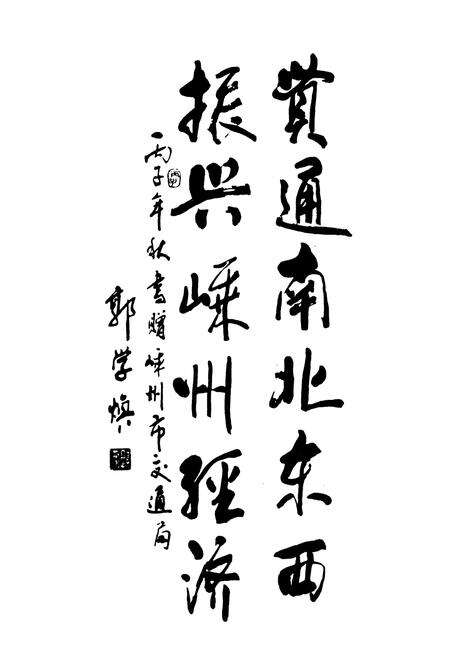 贯通南北东西
振兴嵊州经济
丙子年秋书赠嵊州市交通局
郭学焕